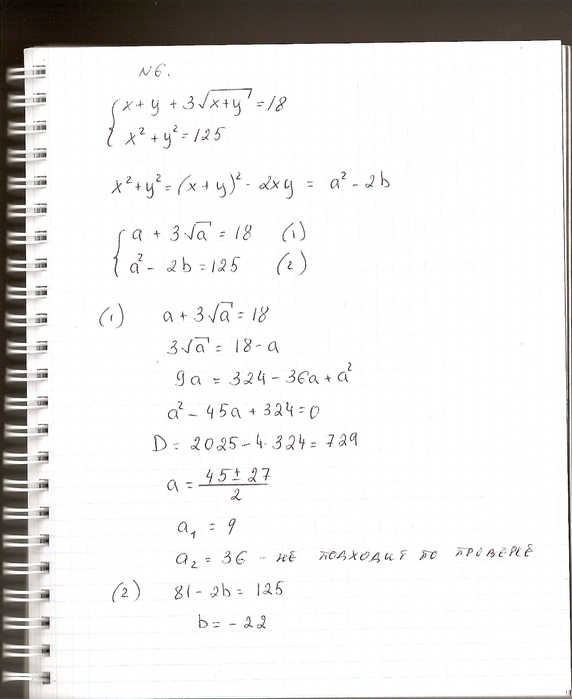 N6.
{ x + y + 3√(x+y) = 18
{ x² + y² = 125
x² + y² = (x + y)² - 2xy = a² - 2b
{ a + 3√a = 18 (1)
{ a² - 2b = 125 (2)
(1) a + 3√a = 18
3√a = 18 - a
9a = 324 - 36a + a²
a² - 45a + 324 = 0
D = 2025 - 4·324 = 729
a = (45 ± 27)/2
a₁ = 9
a₂ = 36 - не подходит по проверке
(2) 81 - 2b = 125
b = -22